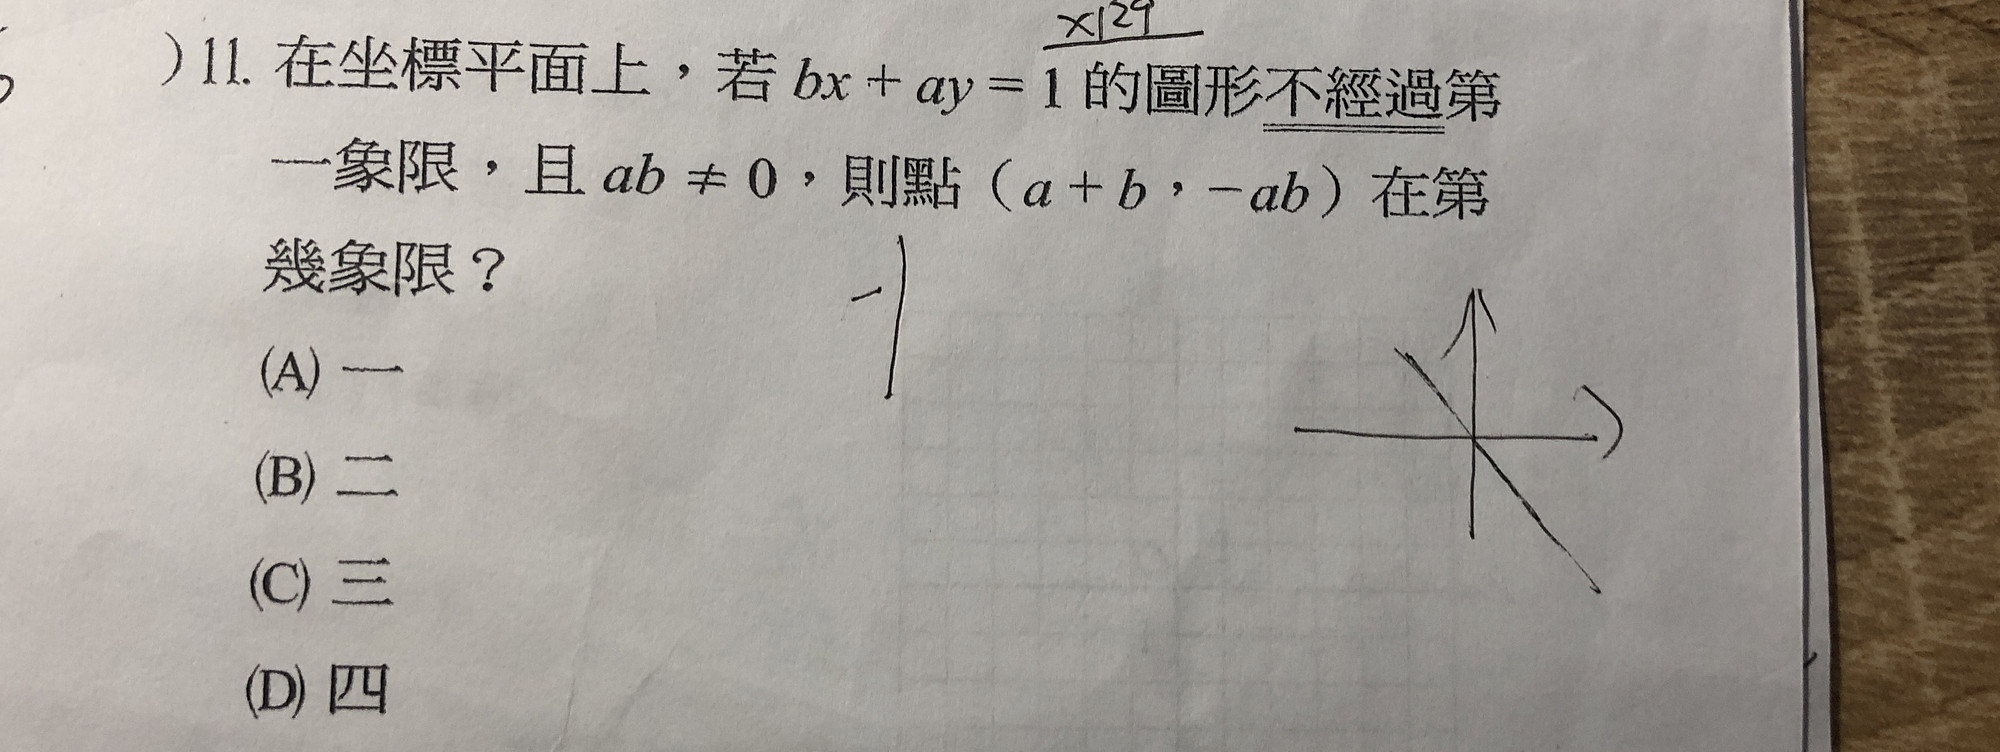 x129
)11. 在坐標平面上，若 bx + ay = 1 的圖形不經過第
一象限，且 ab ≠ 0，則點（a + b，-ab）在第
幾象限？
(A) 一
(B) 二
(C) 三
(D) 四